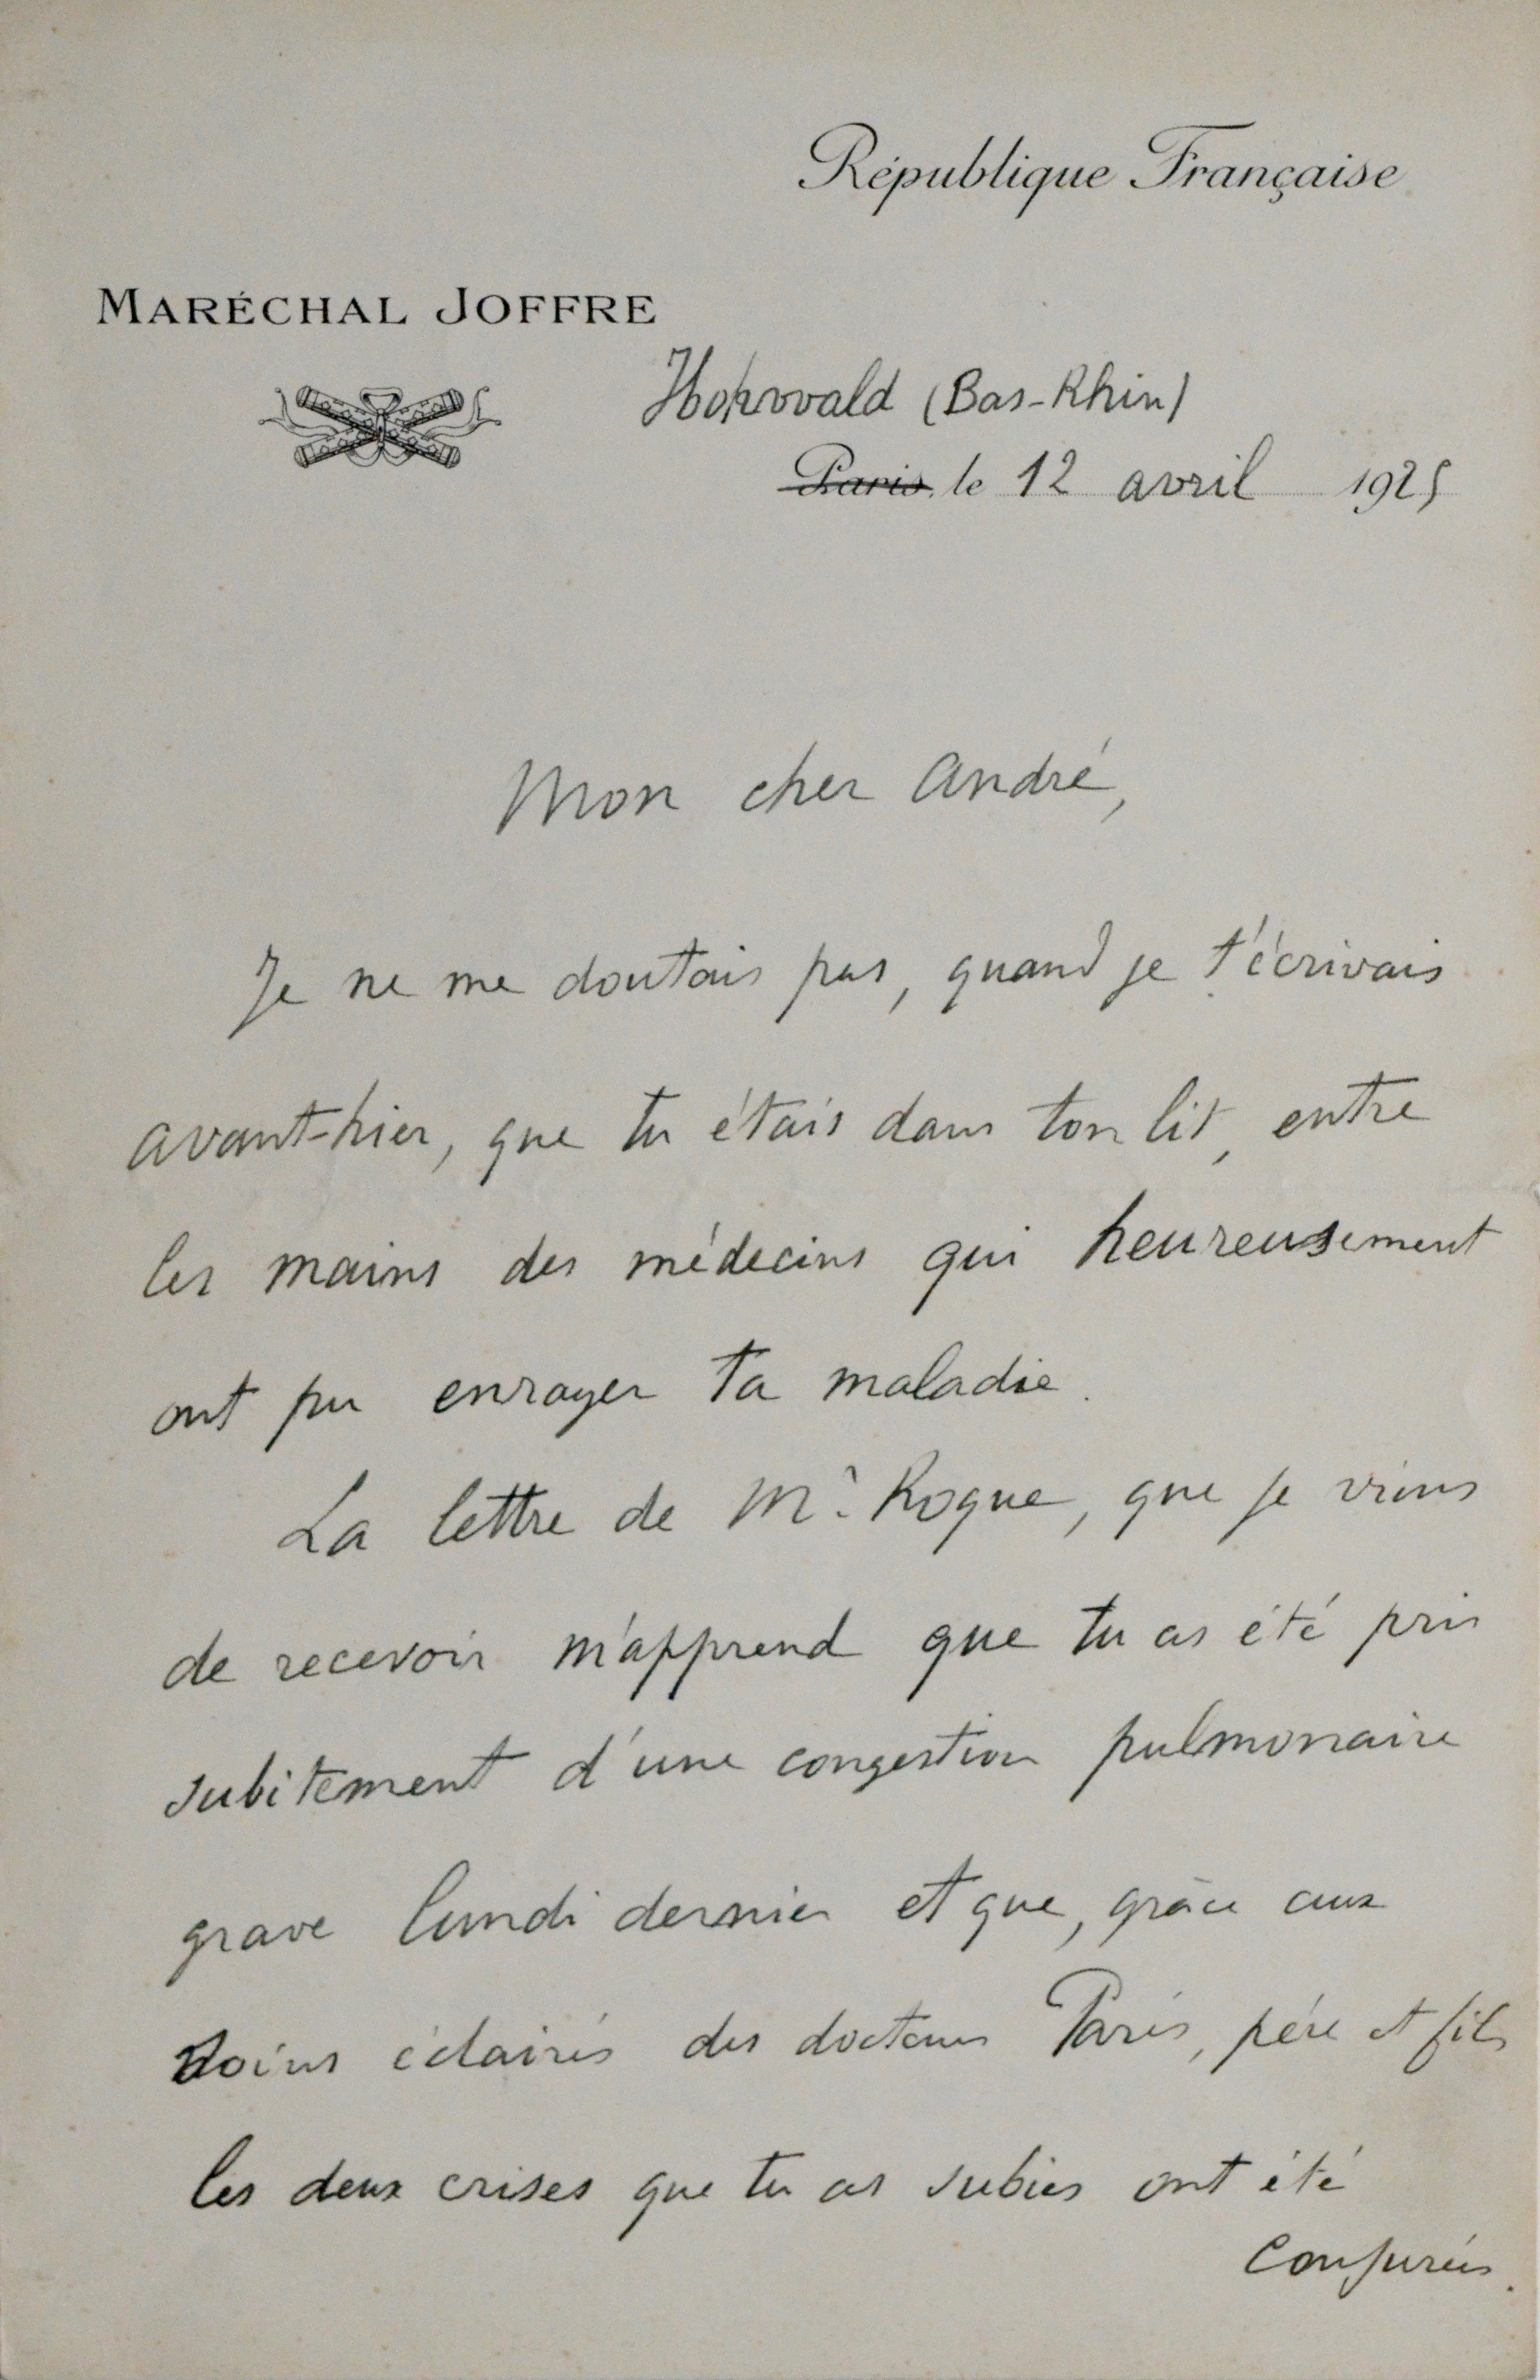 République Française
MARÉCHAL JOFFRE
Hohwald (Bas-Rhin)
Paris, le 12 avril 1925
Mon cher André,
Je ne me doutais pas, quand je t'écrivais
avant-hier, que tu étais dans ton lit, entre
les mains des médecins qui heureusement
ont pu enrayer ta maladie.
La lettre de Mr Roque, que je viens
de recevoir m'apprend que tu as été pris
subitement d'une congestion pulmonaire
grave lundi dernier et que, grâce aux
soins éclairés des docteurs Parès, père et fils
les deux crises que tu as subies ont été
conjurées.